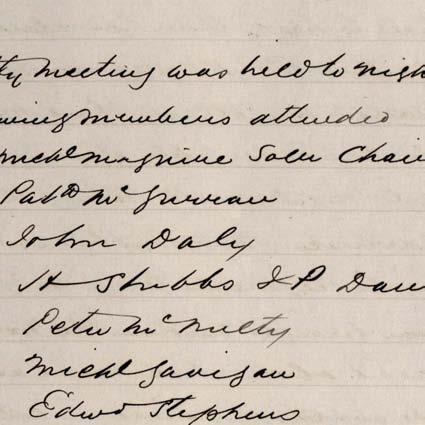 ty meeting was held to nigh
owing members attended
Michl Maguire Solr Chair
Patk McGurran
John Daly
H Stubbs J P Dau
Peter McNulty
Michl Gavigan
Edwd Stephens